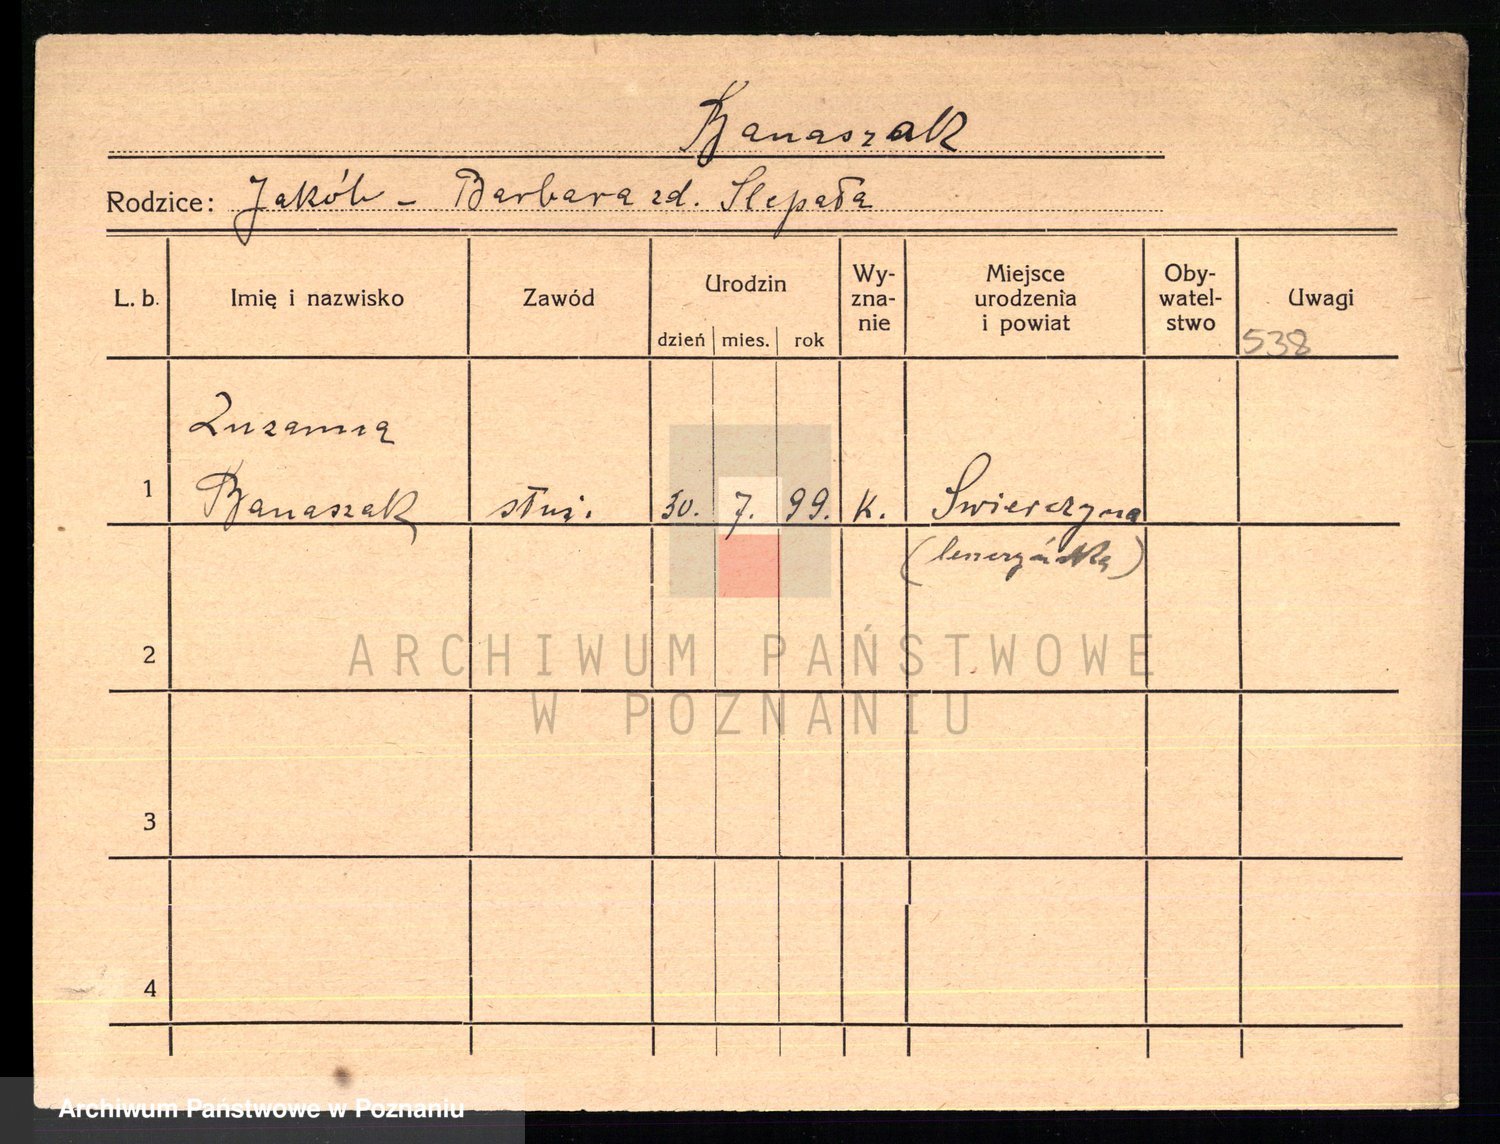 Banaszak
Rodzice: Jakób - Barbara zd. Slepała
L. b.
Imię i nazwisko
Zawód
Urodzin
dzień mies. rok
Wy-
zna-
nie
Miejsce
urodzenia
i powiat
Oby-
watel-
stwo
Uwagi
538
Zuzanna
1 Banaszak służ. 30. 7. 99. k. Swierczyna
2
3
4
ARCHIWUM PAŃSTWOWE
W POZNANIU
Archiwum Państwowe w Poznaniu